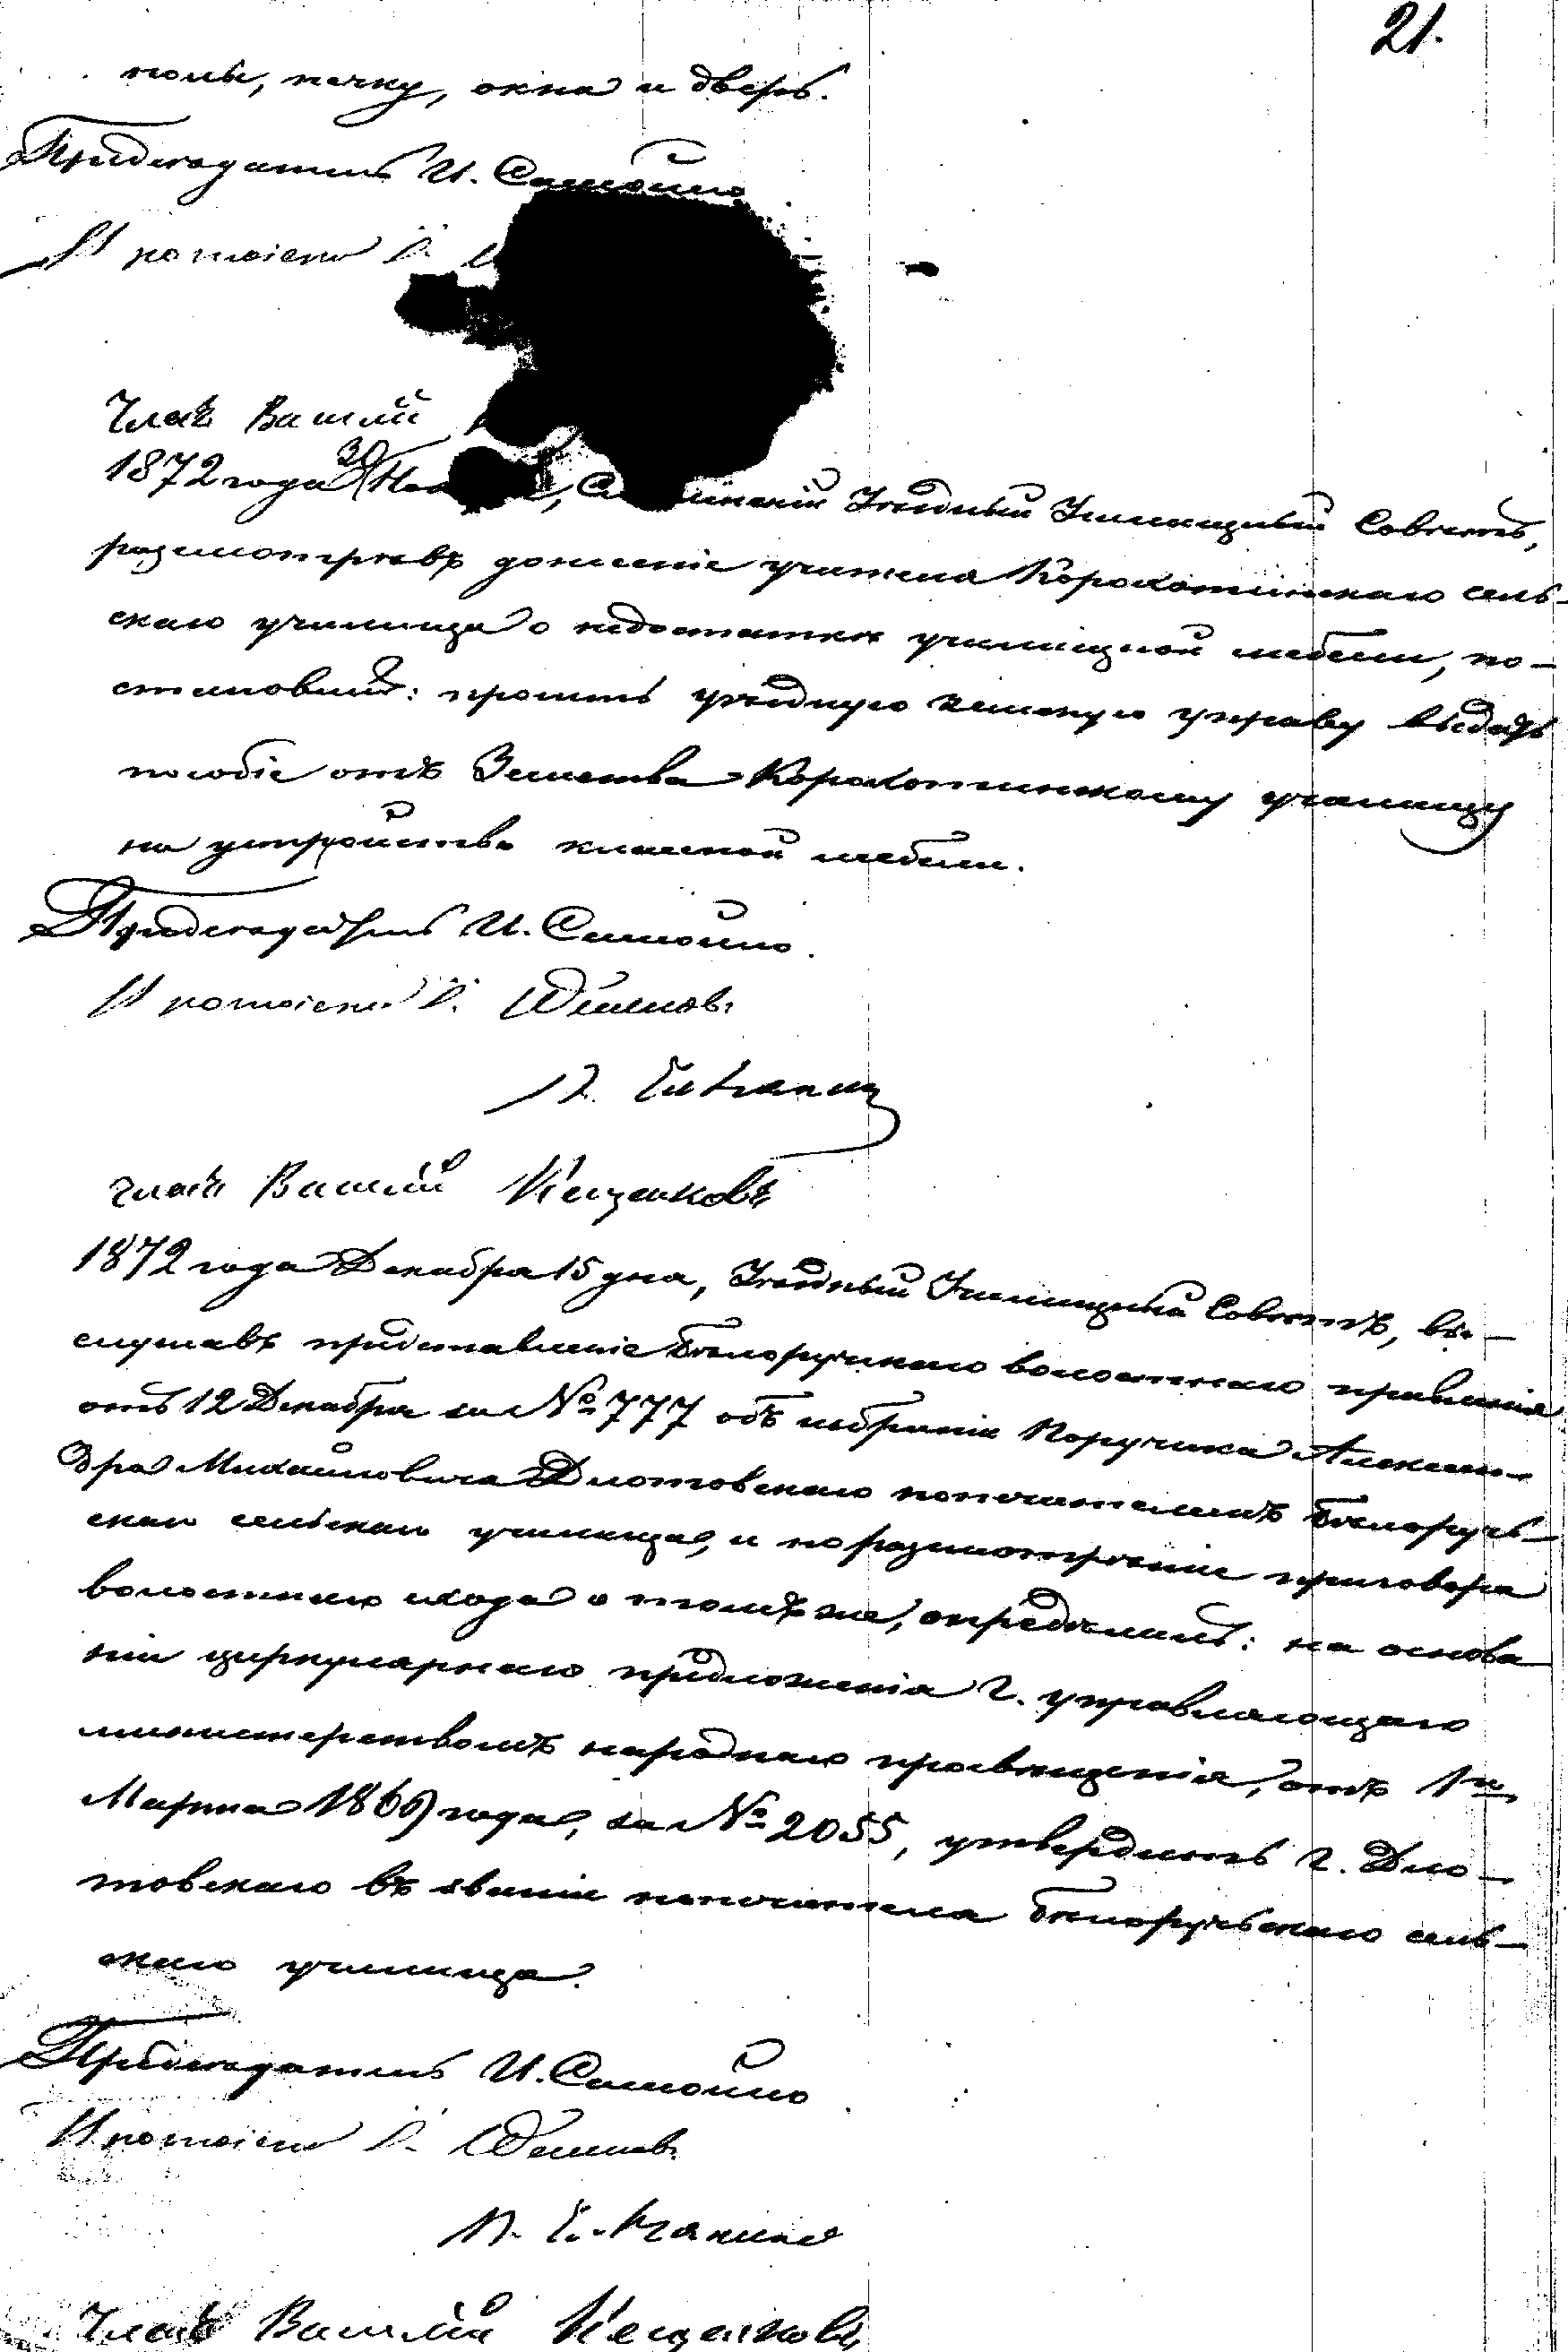 21.
полы, печку, окна и дверь.
Предсѣдатель И. Самойло
Протоіерей
Членъ Василій
1872 года 30 Уѣздный Училищный Совѣтъ,
разсмотрѣвъ донесеніе учителя Корохоткинскаго сель-
скаго училища о недостаткѣ училищной мебели, по-
становилъ: просить уѣздную земскую управу выдать
пособіе отъ Земства Корохоткинскому училищу
на устройство классной мебели.
Предсѣдатель И. Самойло.
Протоіерей
Членъ Василій Кещенковъ
1872 года Декабря 15 дня, Уѣздный Училищный Совѣтъ, вы-
слушавъ представленіе Бѣлоручскаго волостнаго правленія
отъ 12 Декабря за № 777 объ избраніи Поручика Алексан-
дра Михайловича Длотовскаго попечителемъ Бѣлоручь-
скаго сельскаго училища, и по разсмотрѣніи приговора
волостнаго схода о томъ же, опредѣлилъ: на основа
ніи циркулярнаго предложенія г. управляющаго
министерствомъ народнаго просвѣщенія, отъ 1го
Марта 1869 года, за № 2055, утвердить г. Дло-
товскаго въ званіи попечителя Бѣлоручьскаго сель-
скаго училища.
Предсѣдатель И. Самойло
Протоіерей
Членъ Василій Кещенковъ